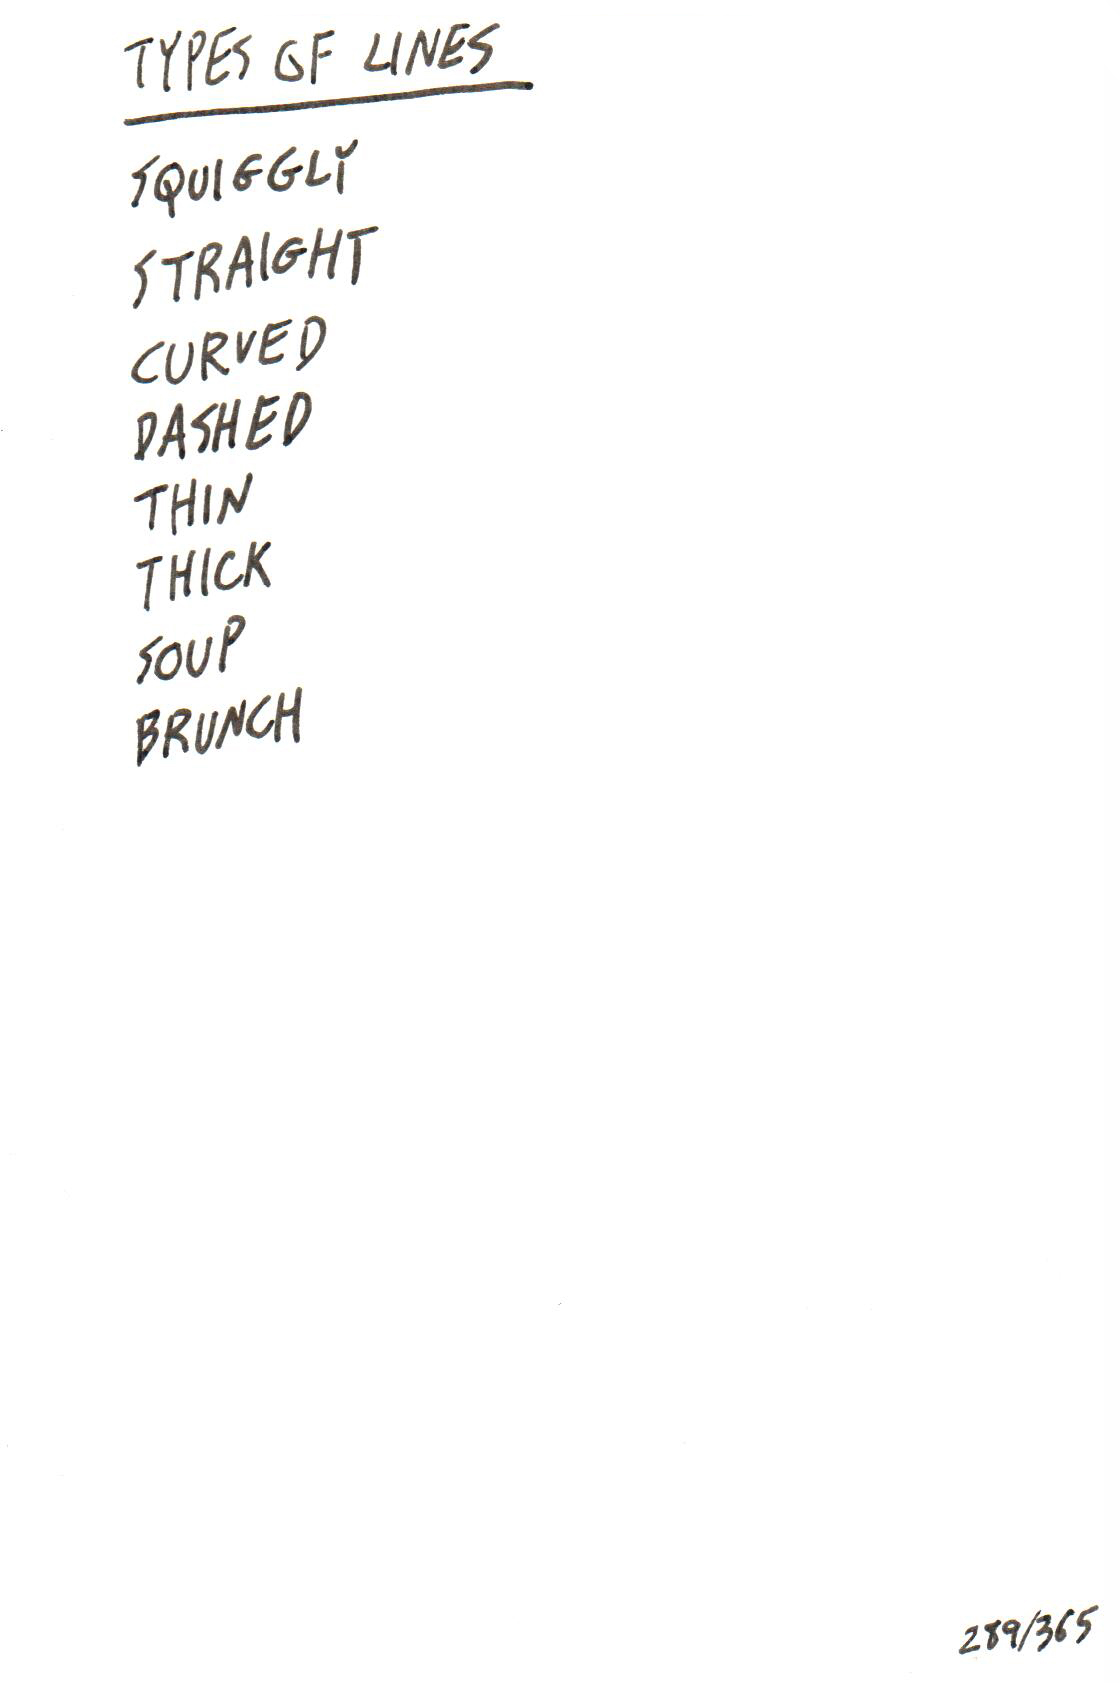 TYPES OF LINES
SQUIGGLY
STRAIGHT
CURVED
DASHED
THIN
THICK
SOUP
BRUNCH
289/365